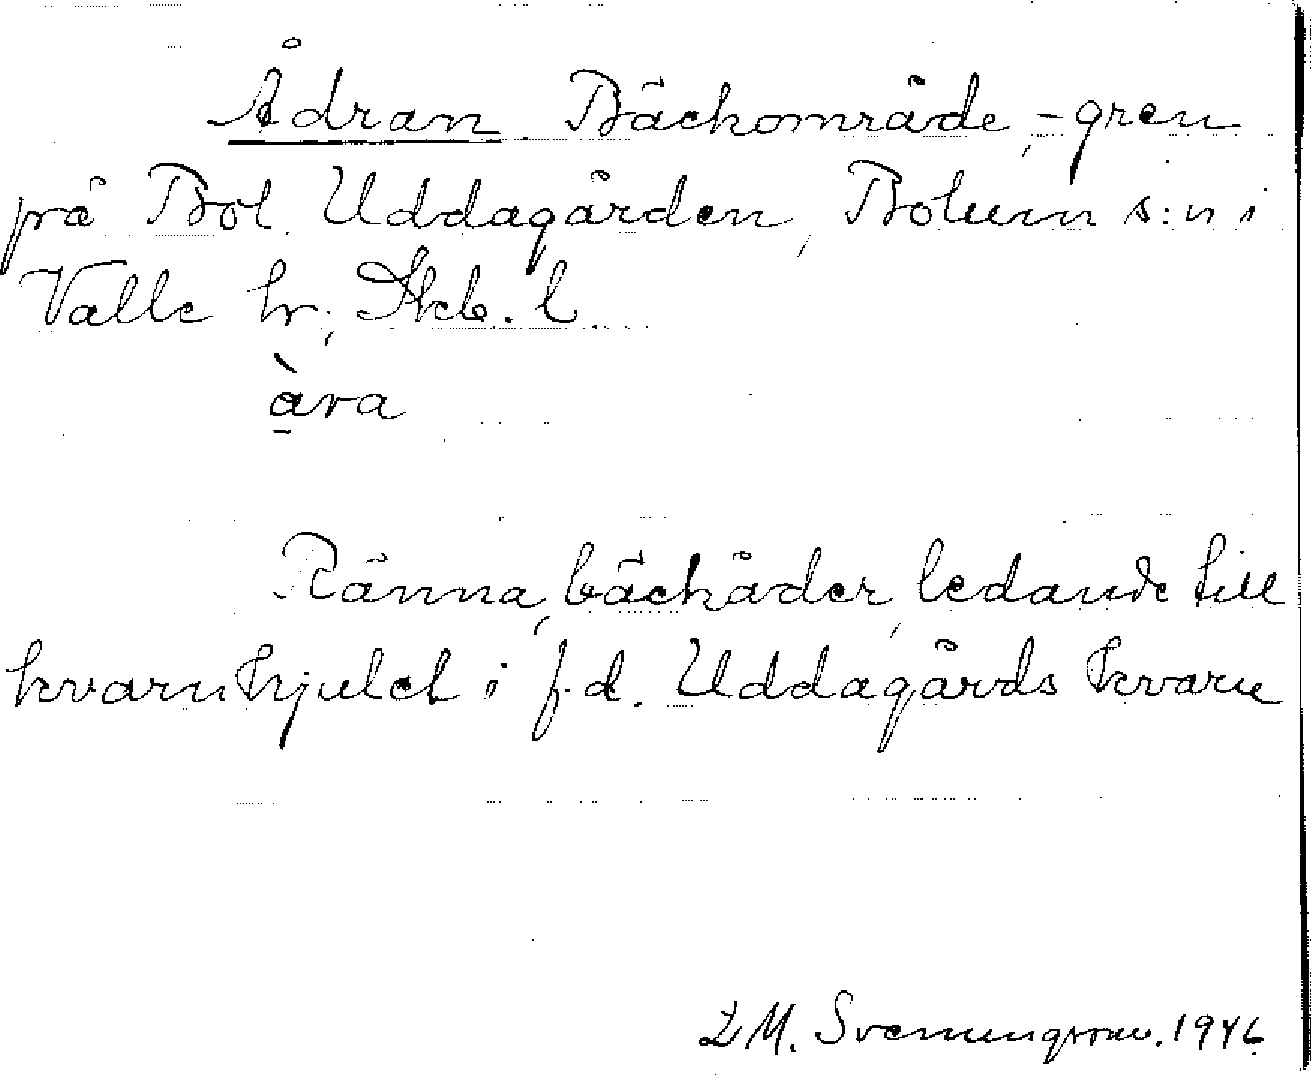 Ådran Bäckområde, -gren
på Bol. Uddagården, Bolum s:n i
Valle hr, Skb. l.
àra
Ränna, bäckåder, ledande till
kvarnhjulet i f.d. Uddagårds kvarn
Z M. Svenungsson. 1946.